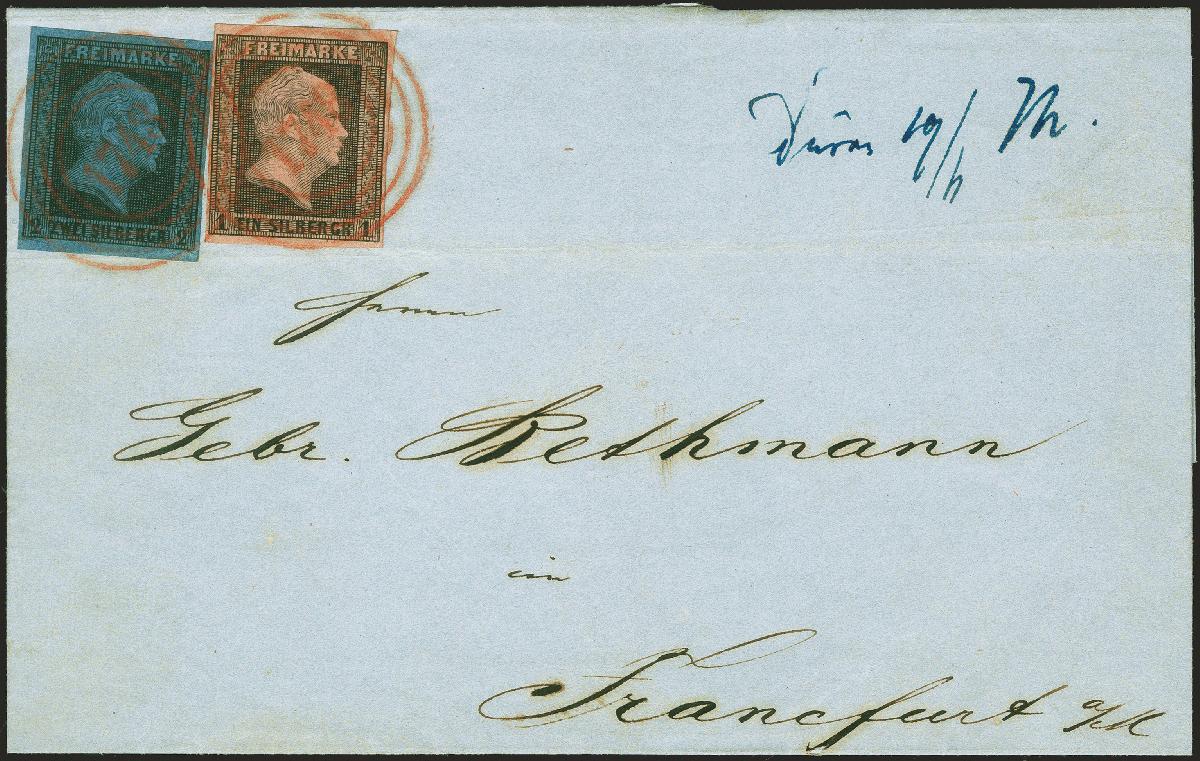 FREIMARKE
2 ZWEI SILBERGR. 2
FREIMARKE
1 EIN SILBERGR. 1
Düren 19/11 M.
Herrn
Gebr. Bethmann
in
Francfurt a/M